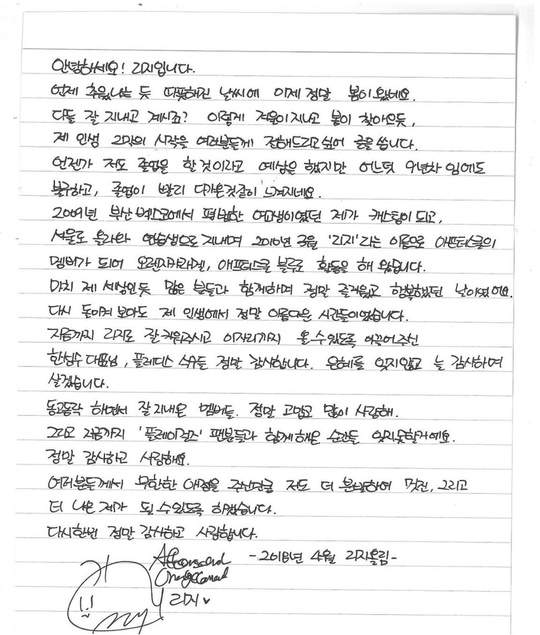 안녕하세요! 리지입니다.
언제 추웠냐는 듯 따뜻해진 날씨에 이제 정말 봄이 왔네요.
다들 잘 지내고 계시죠? 이렇게 겨울이 지나고 봄이 찾아오듯,
제 인생 2막의 시작을 여러분들께 전해드리고 싶어 글을 씁니다.
언젠가 저도 졸업을 할 것이라고 예상은 했지만 어느덧 9년차 임에도
불구하고, 졸업이 빨리 다가온것같이 느껴지네요.
2009년 부산 벡스코에서 평범한 여고생이였던 제가 캐스팅이 되고,
서울로 올라와 연습생으로 지내며 2010년 3월 '리지'라는 이름으로 애프터스쿨의
멤버가 되어 오렌지캬라멜, 애프터스쿨 블루로 활동을 해 왔습니다.
마치 제 세상인듯 많은 분들과 함께하며 정말 즐거웠고 행복했던 날이였어요.
다시 돌이켜 보아도 제 인생에서 정말 아름다운 시간들이었습니다.
지금까지 리지로 잘 키워주시고 이자리까지 올 수 있도록 이끌어주신
한성수 대표님, 플레디스 식구들 정말 감사합니다. 은혜를 잊지않고 늘 감사하며
살겠습니다.
동고동락 하면서 잘 지내온 멤버들. 정말 고맙고 많이 사랑해.
그리고 지금까지 '플레이걸즈' 팬분들과 함께 해온 순간들 잊지못할거에요.
정말 감사하고 사랑해요.
여러분들께서 무한한 애정을 주신만큼 저도 더 분발하여 멋진, 그리고
더 나은 제가 될 수 있도록 하겠습니다.
다시한번 정말 감사하고 사랑합니다.
-2018년 4월 리지올림-
리지♥